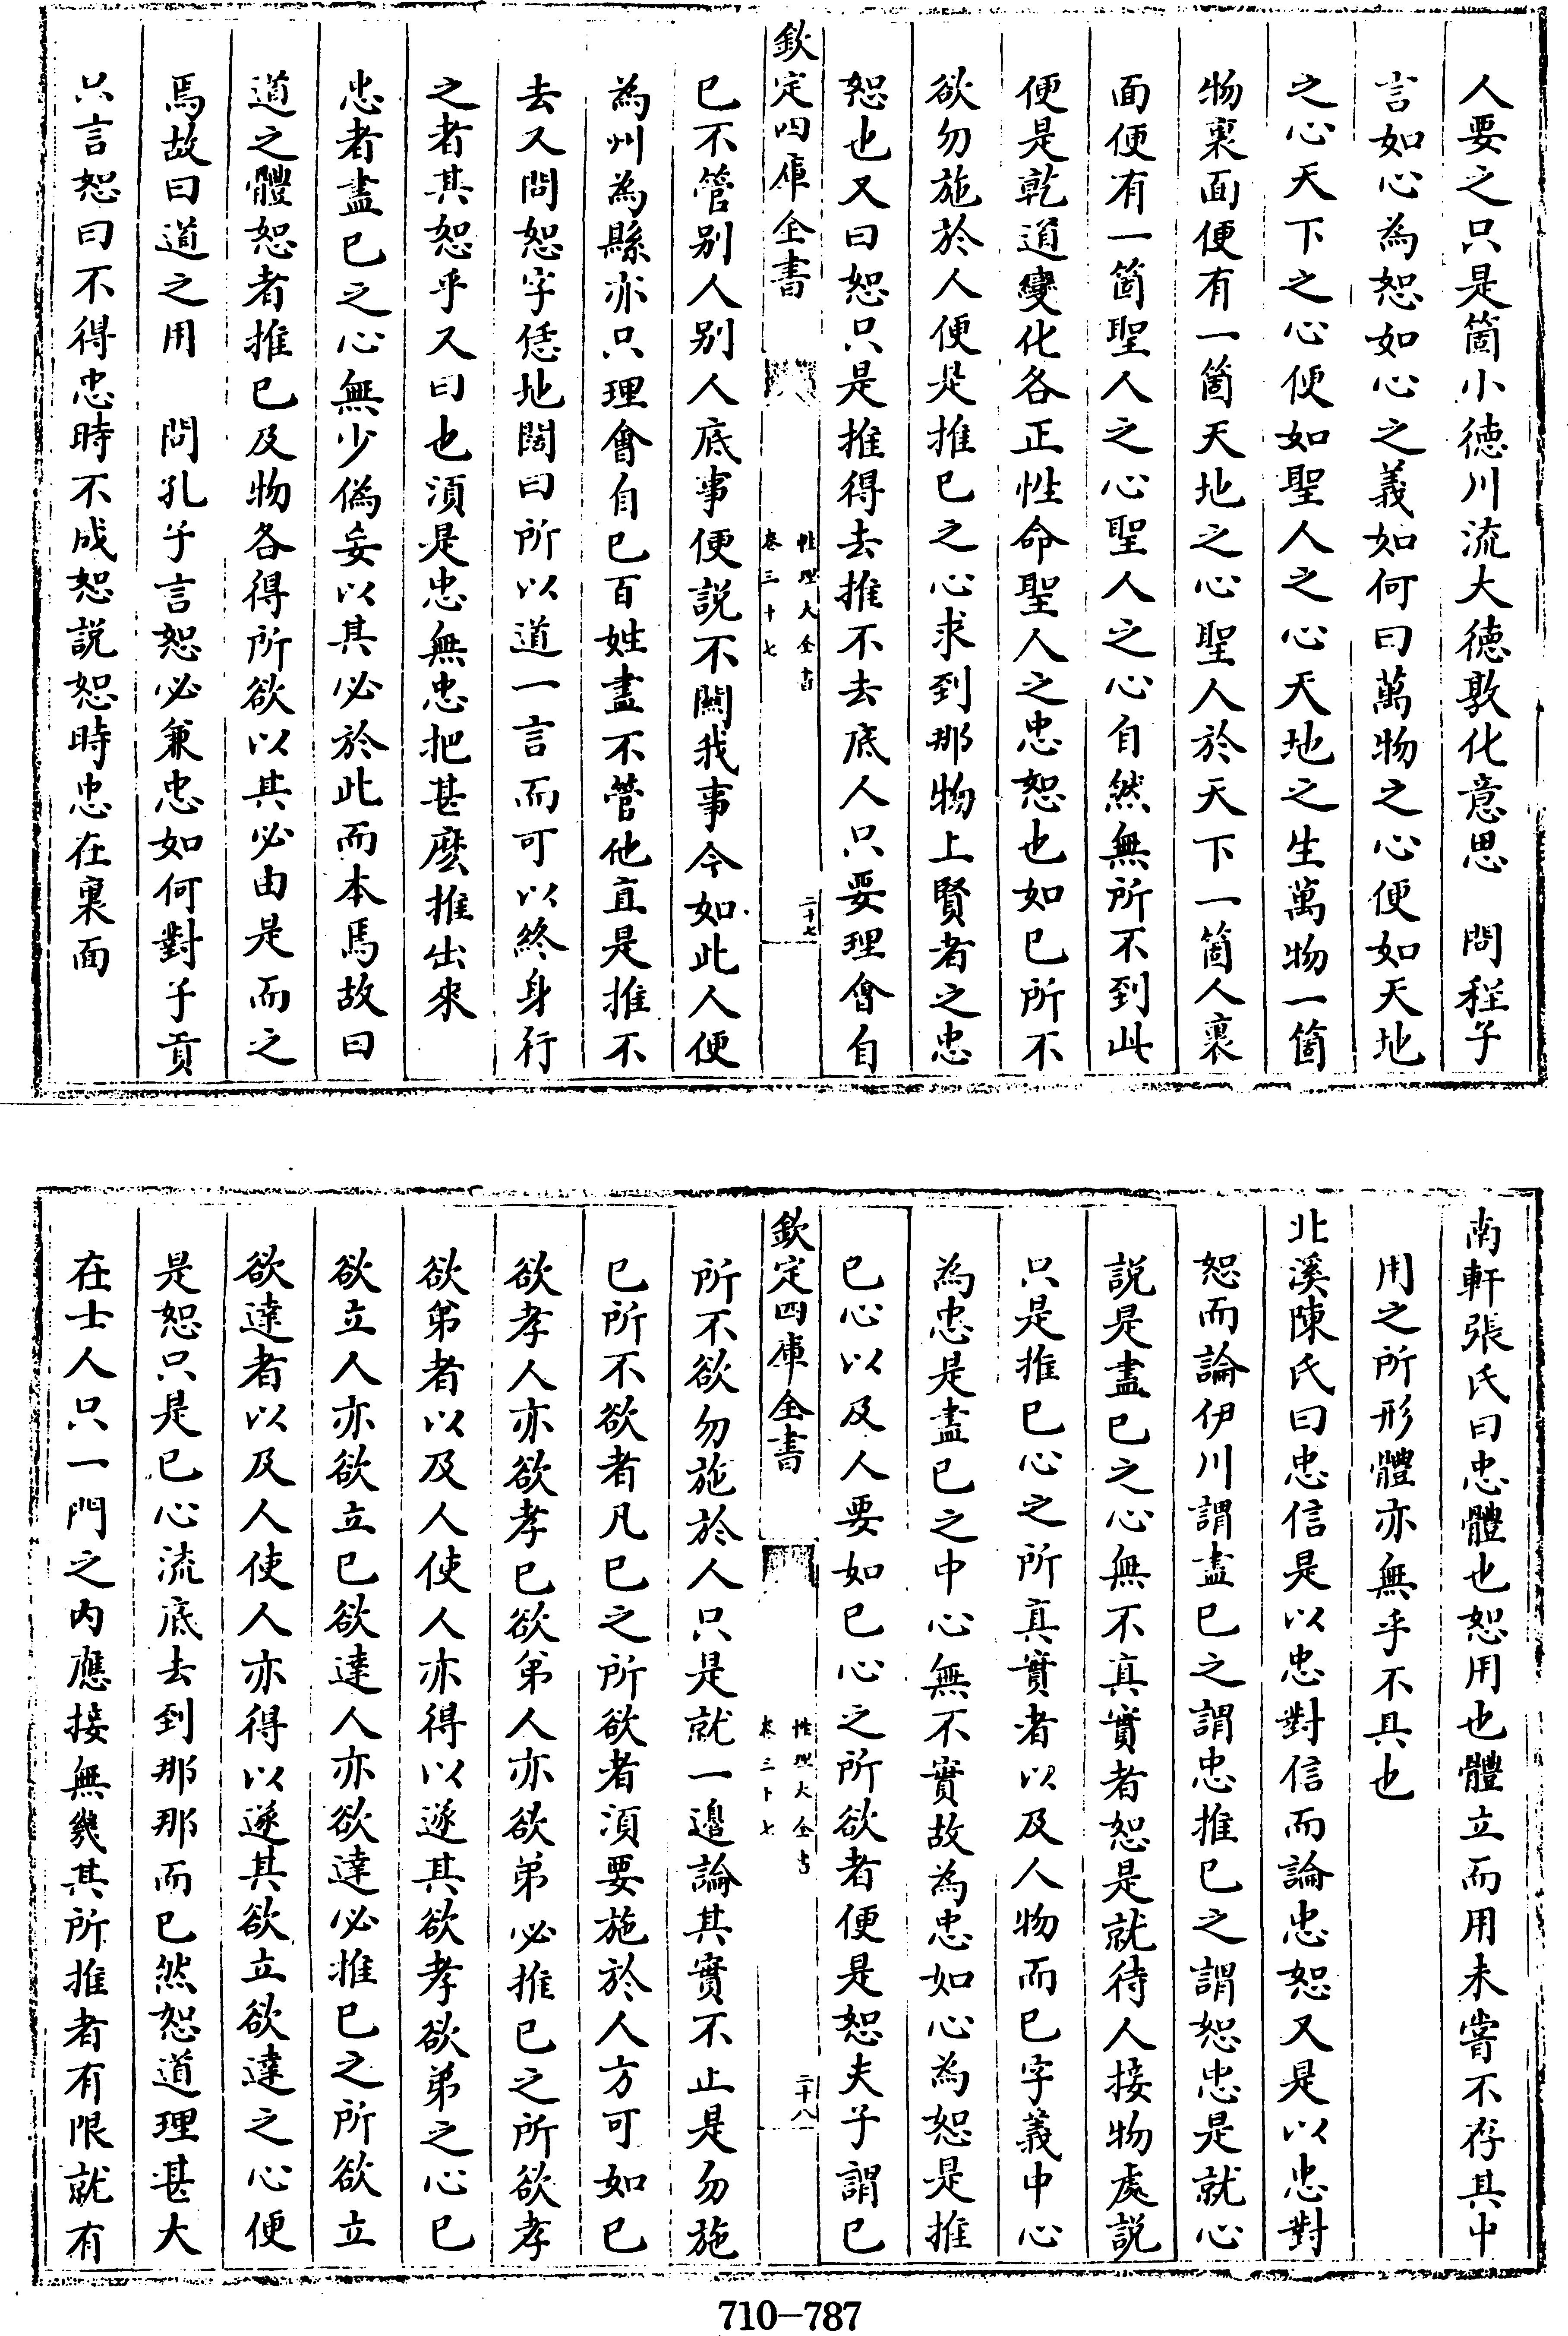 人要之只是箇小德川流大德敦化意思　問程子
言如心為恕如心之義如何曰萬物之心便如天地
之心天下之心便如聖人之心天地之生萬物一箇
物裏面便有一箇天地之心聖人於天下一箇人裏
面便有一箇聖人之心聖人之心自然無所不到此
便是乾道變化各正性命聖人之忠恕也如已所不
欲勿施於人便是推已之心求到那物上賢者之忠
恕也又曰恕只是推得去推不去底人只要理會自
欽定四庫全書
性理大全書
卷三十七
二十七
已不管别人别人底事便説不闗我事今如此人便
為州為縣亦只理會自已百姓盡不管他直是推不
去又問恕字恁地闊曰所以道一言而可以終身行
之者其恕乎又曰也湏是忠無忠把甚麽推出來
忠者盡已之心無少偽妄以其必於此而本焉故曰
道之體恕者推已及物各得所欲以其必由是而之
焉故曰道之用　問孔子言恕必兼忠如何對子貢
只言恕曰不得忠時不成恕説恕時忠在裏面
南軒張氏曰忠體也恕用也體立而用未嘗不存其中
用之所形體亦無乎不具也
北溪陳氏曰忠信是以忠對信而論忠恕又是以忠對
恕而論伊川謂盡已之謂忠推已之謂恕忠是就心
説是盡已之心無不真實者恕是就待人接物處説
只是推已心之所真實者以及人物而已字義中心
為忠是盡已之中心無不實故為忠如心為恕是推
已心以及人要如已心之所欲者便是恕夫子謂已
欽定四庫全書
性理大全書
卷三十七
二十八
所不欲勿施於人只是就一邊論其實不止是勿施
已所不欲者凡已之所欲者湏要施於人方可如已
欲孝人亦欲孝已欲弟人亦欲弟必推已之所欲孝
欲弟者以及人使人亦得以遂其欲孝欲弟之心已
欲立人亦欲立已欲達人亦欲達必推已之所欲立
欲達者以及人使人亦得以遂其欲立欲達之心便
是恕只是已心流底去到那那而已然恕道理甚大
在士人只一門之内應接無幾其所推者有限就有
710-787